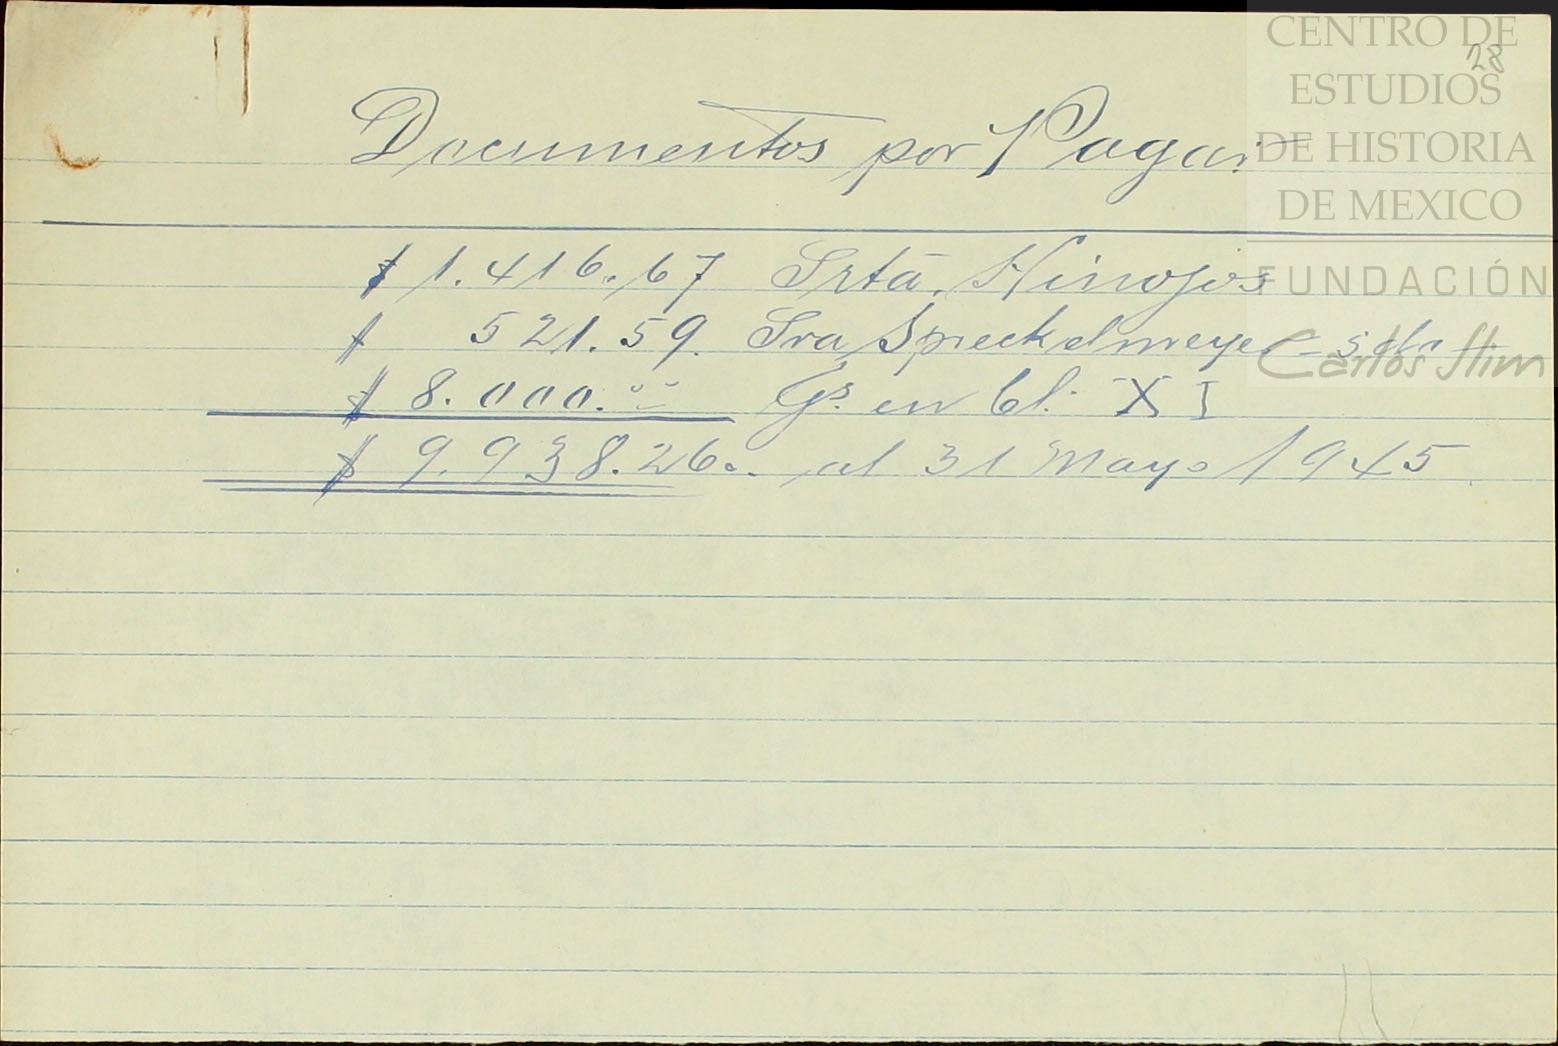 28
Documentos por Pagar
$ 1.416.67 Srta. Hinojos
$ 521.59. Sra Spreckelmeyer
$ 8.000.00 Gs. en Cl. XI
$ 9.938.26. al 31 Mayo 1945
CENTRO DE
ESTUDIOS
DE HISTORIA
DE MEXICO
FUNDACIÓN
Carlos Slim